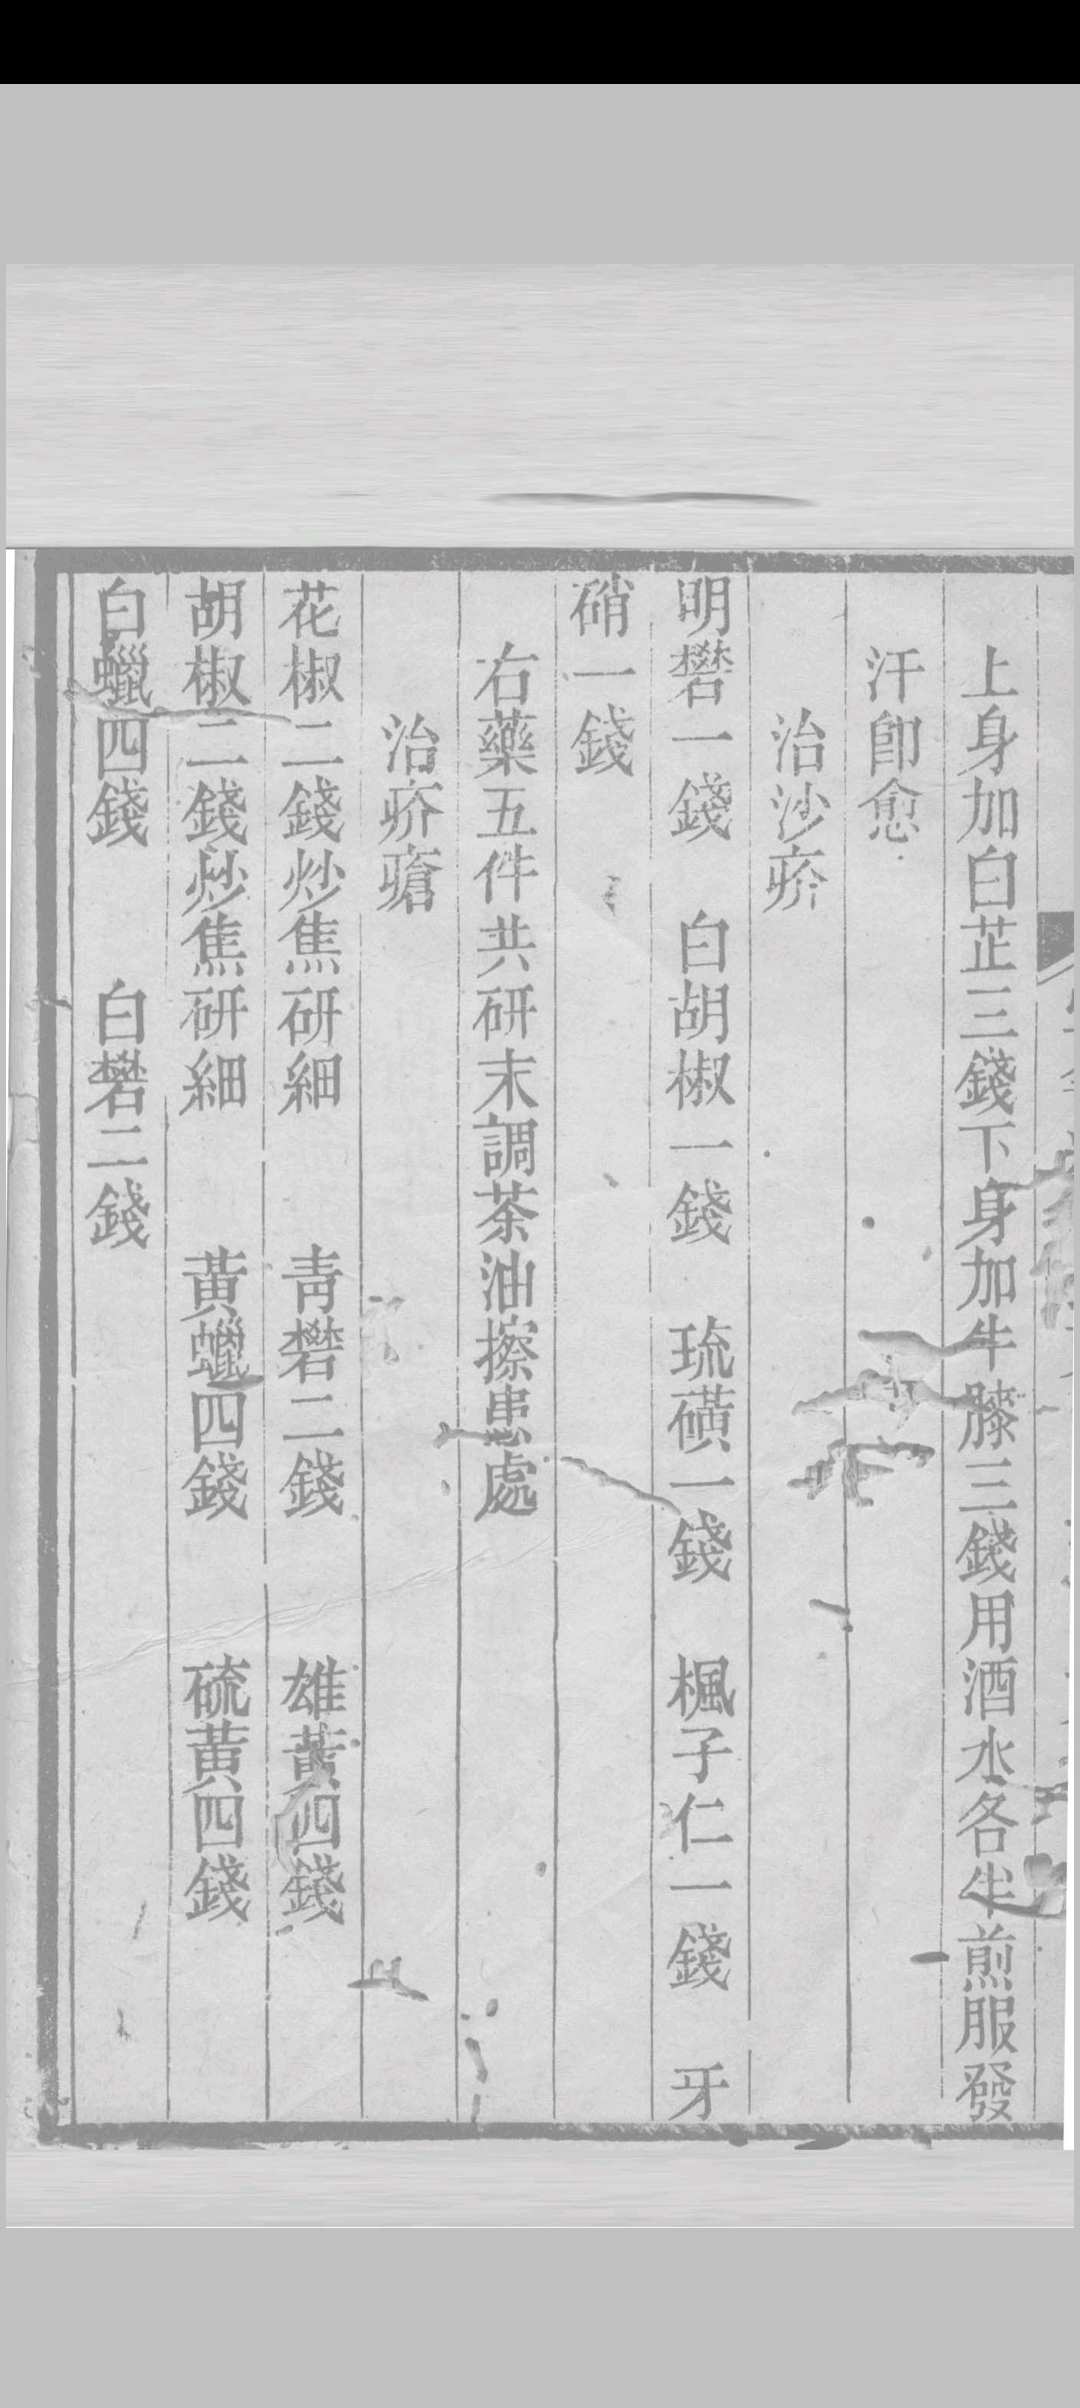 上身加白芷三錢下身加牛膝三錢用酒水各半煎服發
汗卽愈
治沙疥
明礬一錢 白胡椒一錢 琉磺一錢 楓子仁一錢 牙
硝一錢
右藥五件共研末調茶油擦患處
治疥瘡
花椒二錢炒焦研細 靑礬二錢 雄黃四錢
胡椒二錢炒焦研細 黃蠟四錢 硫黃四錢
白蠟四錢 白礬二錢